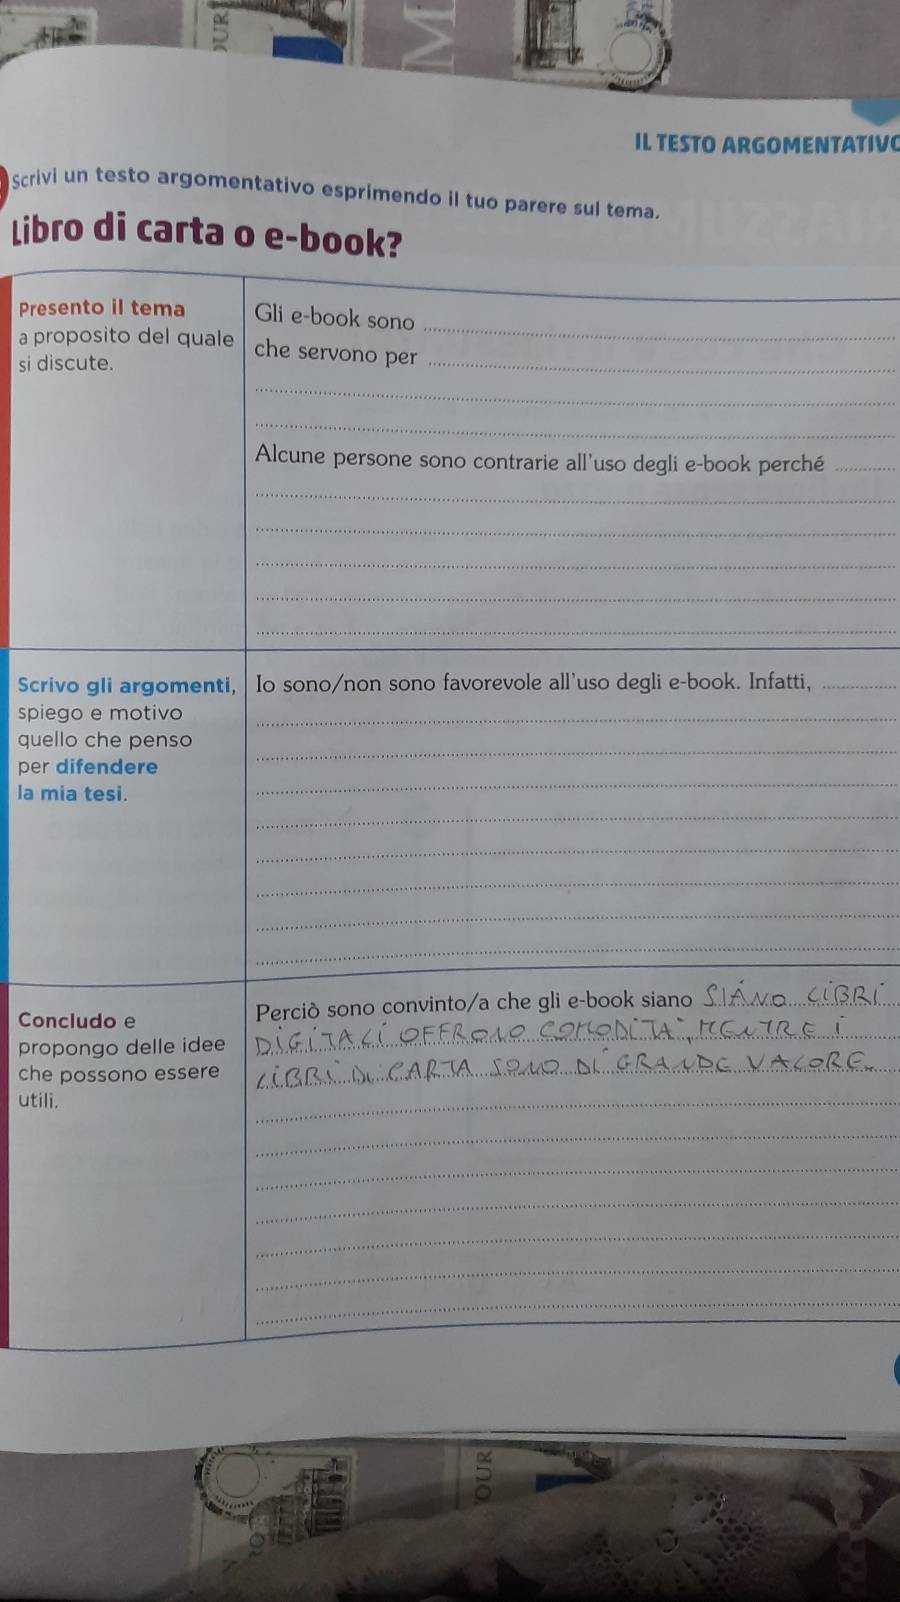 OUR
M
IL TESTO ARGOMENTATIVO
Scrivi un testo argomentativo esprimendo il tuo parere sul tema.
Libro di carta o e-book?
Presento il tema
a proposito del quale
si discute.
Gli e-book sono
che servono per
Alcune persone sono contrarie all'uso degli e-book perché
Scrivo gli argomenti,
spiego e motivo
quello che penso
per difendere
la mia tesi.
Io sono/non sono favorevole all'uso degli e-book. Infatti,
Concludo e
propongo delle idee
che possono essere
utili.
Perciò sono convinto/a che gli e-book siano SIANO LIBRI
DIGITALI OFFRONO COMODITA', MENTRE I
LIBRI DI CARTA SONO DI GRANDE VALORE.
OUR